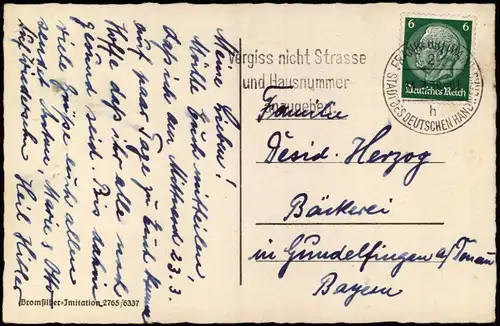 Meine Lieben!
Möchte Euch mitteilen,
daß ich am Mittwoch 23.3.
auf paar Tage zu Euch komme
Hoffe daß ihr alle noch
gesund seid. Bis dahin
viele Grüße euch allen
sendet Anton, Marie & Otto
Auf Wiedersehn Heil Hitler
Bromsilber-Imitation 2765/6337
Vergiss nicht Strasse
und Hausnummer
anzugeben
STADT DES DEUTSCHEN HANDWERKS
h
6 6
Deutsches Reich
Familie
Desid. Herzog
Bäckerei
in Gundelfingen a/Donau
Bayern